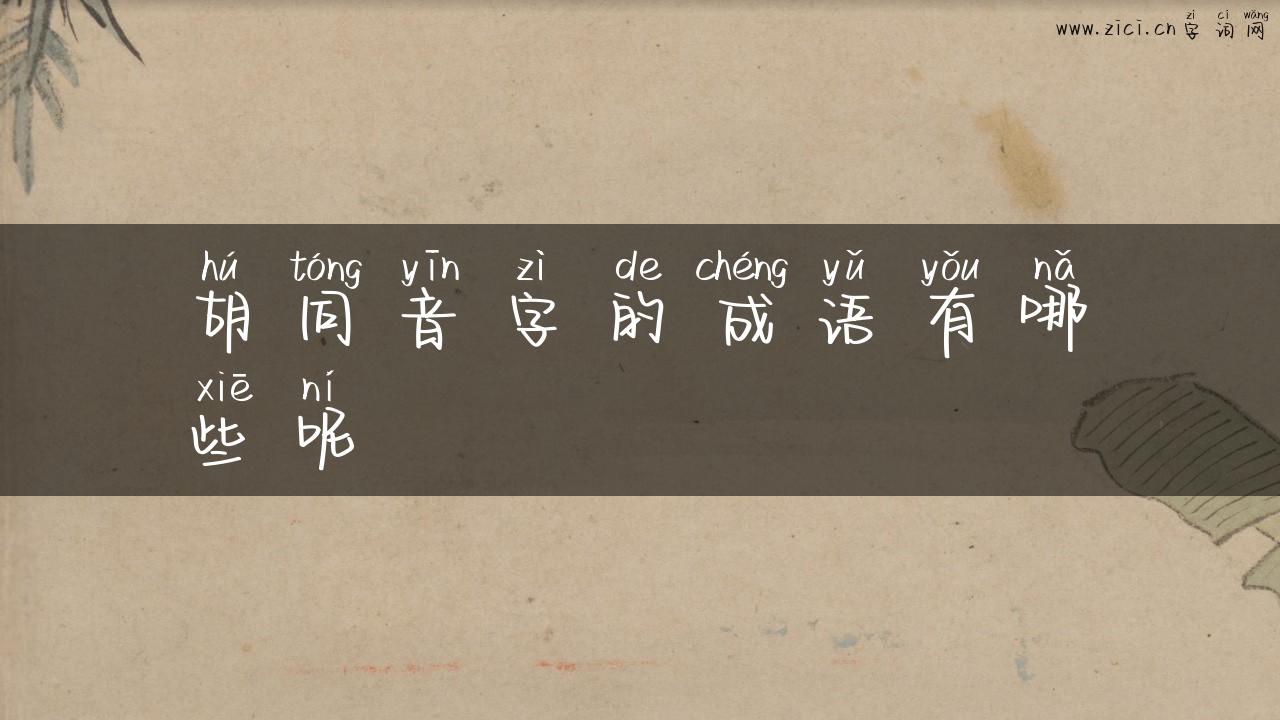 zì cí wǎng
www.zici.cn 字词网
hú tóng yīn zì de chéng yǔ yǒu nǎ
胡同音字的成语有哪
xiē ní
些呢